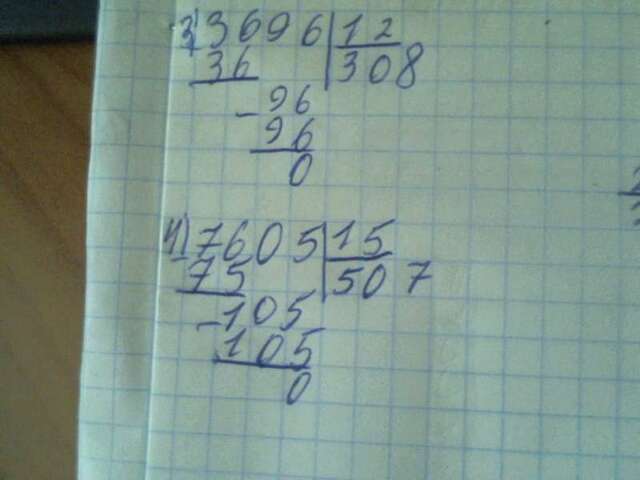 3) 3696 | 12
36 308
- 96
96
0
4) 7605 | 15
- 75 507
- 105
105
0